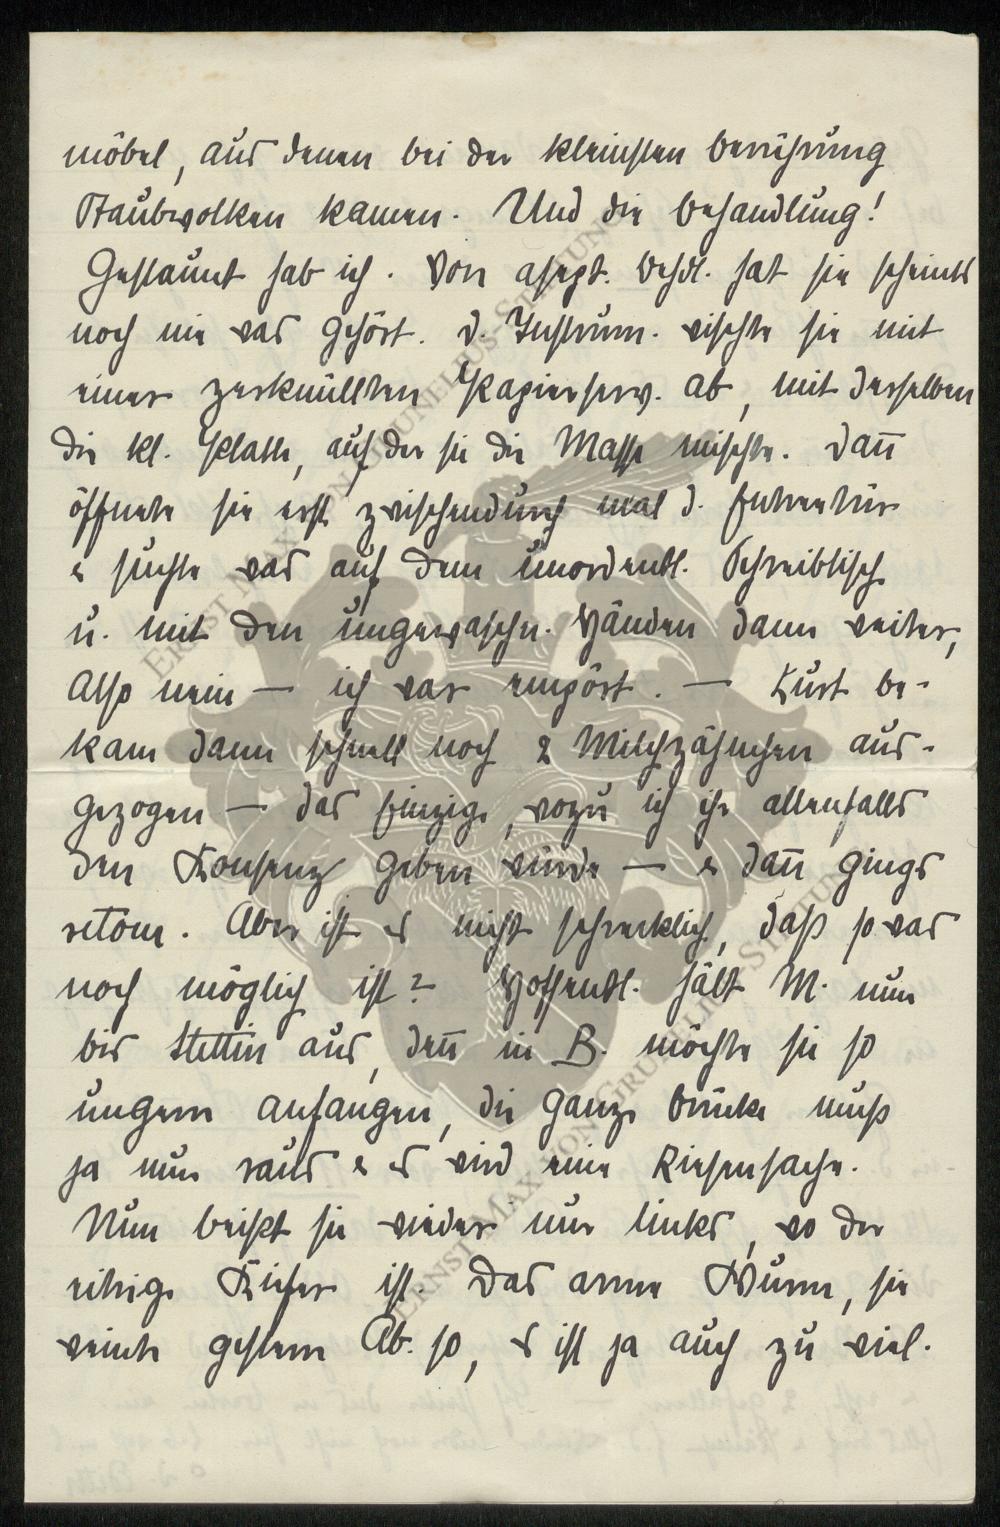 möbel, aus denen bei der kleinsten berührung
Staubwolken kamen. Und die behandlung!
Gestaunt hab ich. Von asept. behdl. hat sie scheints
noch nie was gehört. d. Instrum. wischte sie mit
einer zerknüllten Papierserv. ab, mit derselben
die kl. Platte, auf der sie die Masse mischte. dan̅
öffnete sie erst zwischendurch mal d. Entreetür
& suchte was auf dem unordentl. Schreibtisch
u. mit den ungewaschn. Händen dann weiter,
Also nein — ich war empört. — Kurt be-
kam dann schnell noch 2 Milchzähnchen aus-
gezogen — das Einzige, wozu ich ihr allenfalls
den Konsenz geben würde — & dan̅ gings
retour. Aber ist es nicht schrecklich, daß so was
noch möglich ist? Hoffentl. hält M. nun
bis Stettin aus, den̅ in B. möchte sie so
ungern anfangen, die ganze brücke muß
ja nun raus & es wird eine Riesensache.
Nun beißt sie wieder nur links, wo der
eitrige Kiefer ist. Das arme Wurm, sie
weinte gestern Ab. so, es ist ja auch zu viel.
ERNST MAX VON GRUNELIUS-STIFTUNG
ERNST MAX VON GRUNELIUS-STIFTUNG